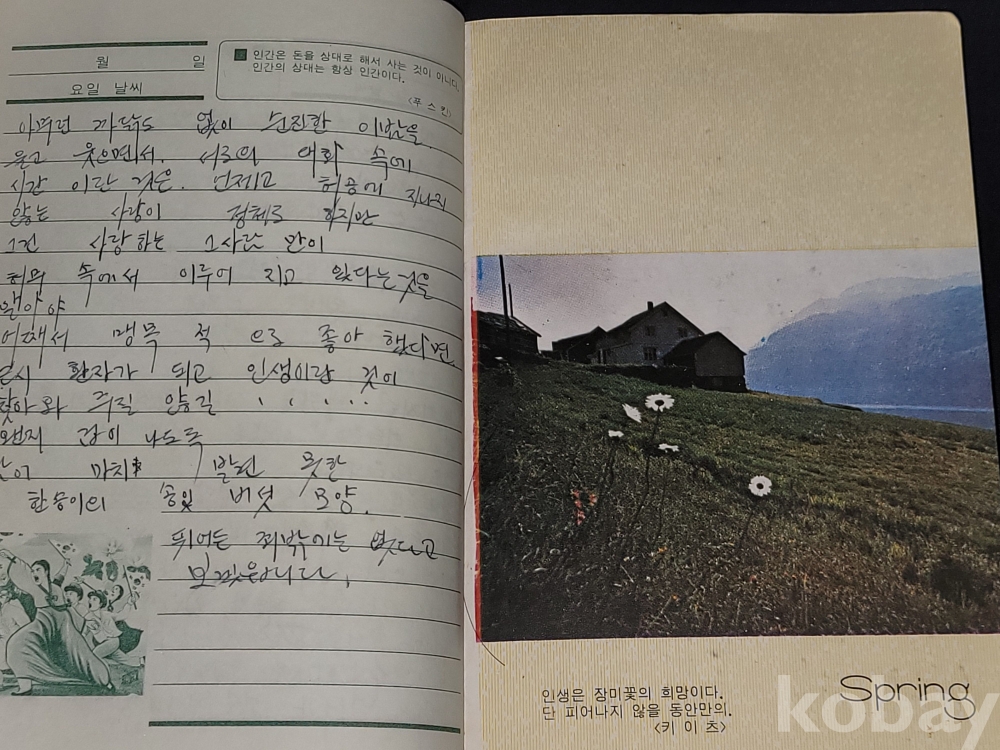 월 일
요일 날씨
인간은 돈을 상대로 해서 사는 것이 아니다.
인간의 상대는 항상 인간이다.
<푸 스 킨>
아무런 까닭도 없이 순진한 이밤을
웃으면서. 서로의 대화 속에
시간 이란 것은. 언제고 허공에 지나지
않는 사랑이 정체로 하지만
그건 사랑하는 그사람 만이
허위 속에서 이루어 지고 있다는것을
알아야
맹목 적 으로 좋아 했다면
환자가 되고 인생이란 것이
찾아와 주질 않을길 . . . . .
왠지 값이 나도록
마치 발견 못한
한송이의 송잎 버섯 모양.
뛰어든 죄밖에는 없다고
인생은 장미꽃의 희망이다.
단 피어나지 않을 동안만의.
<키 이 츠>
Spring
kobay